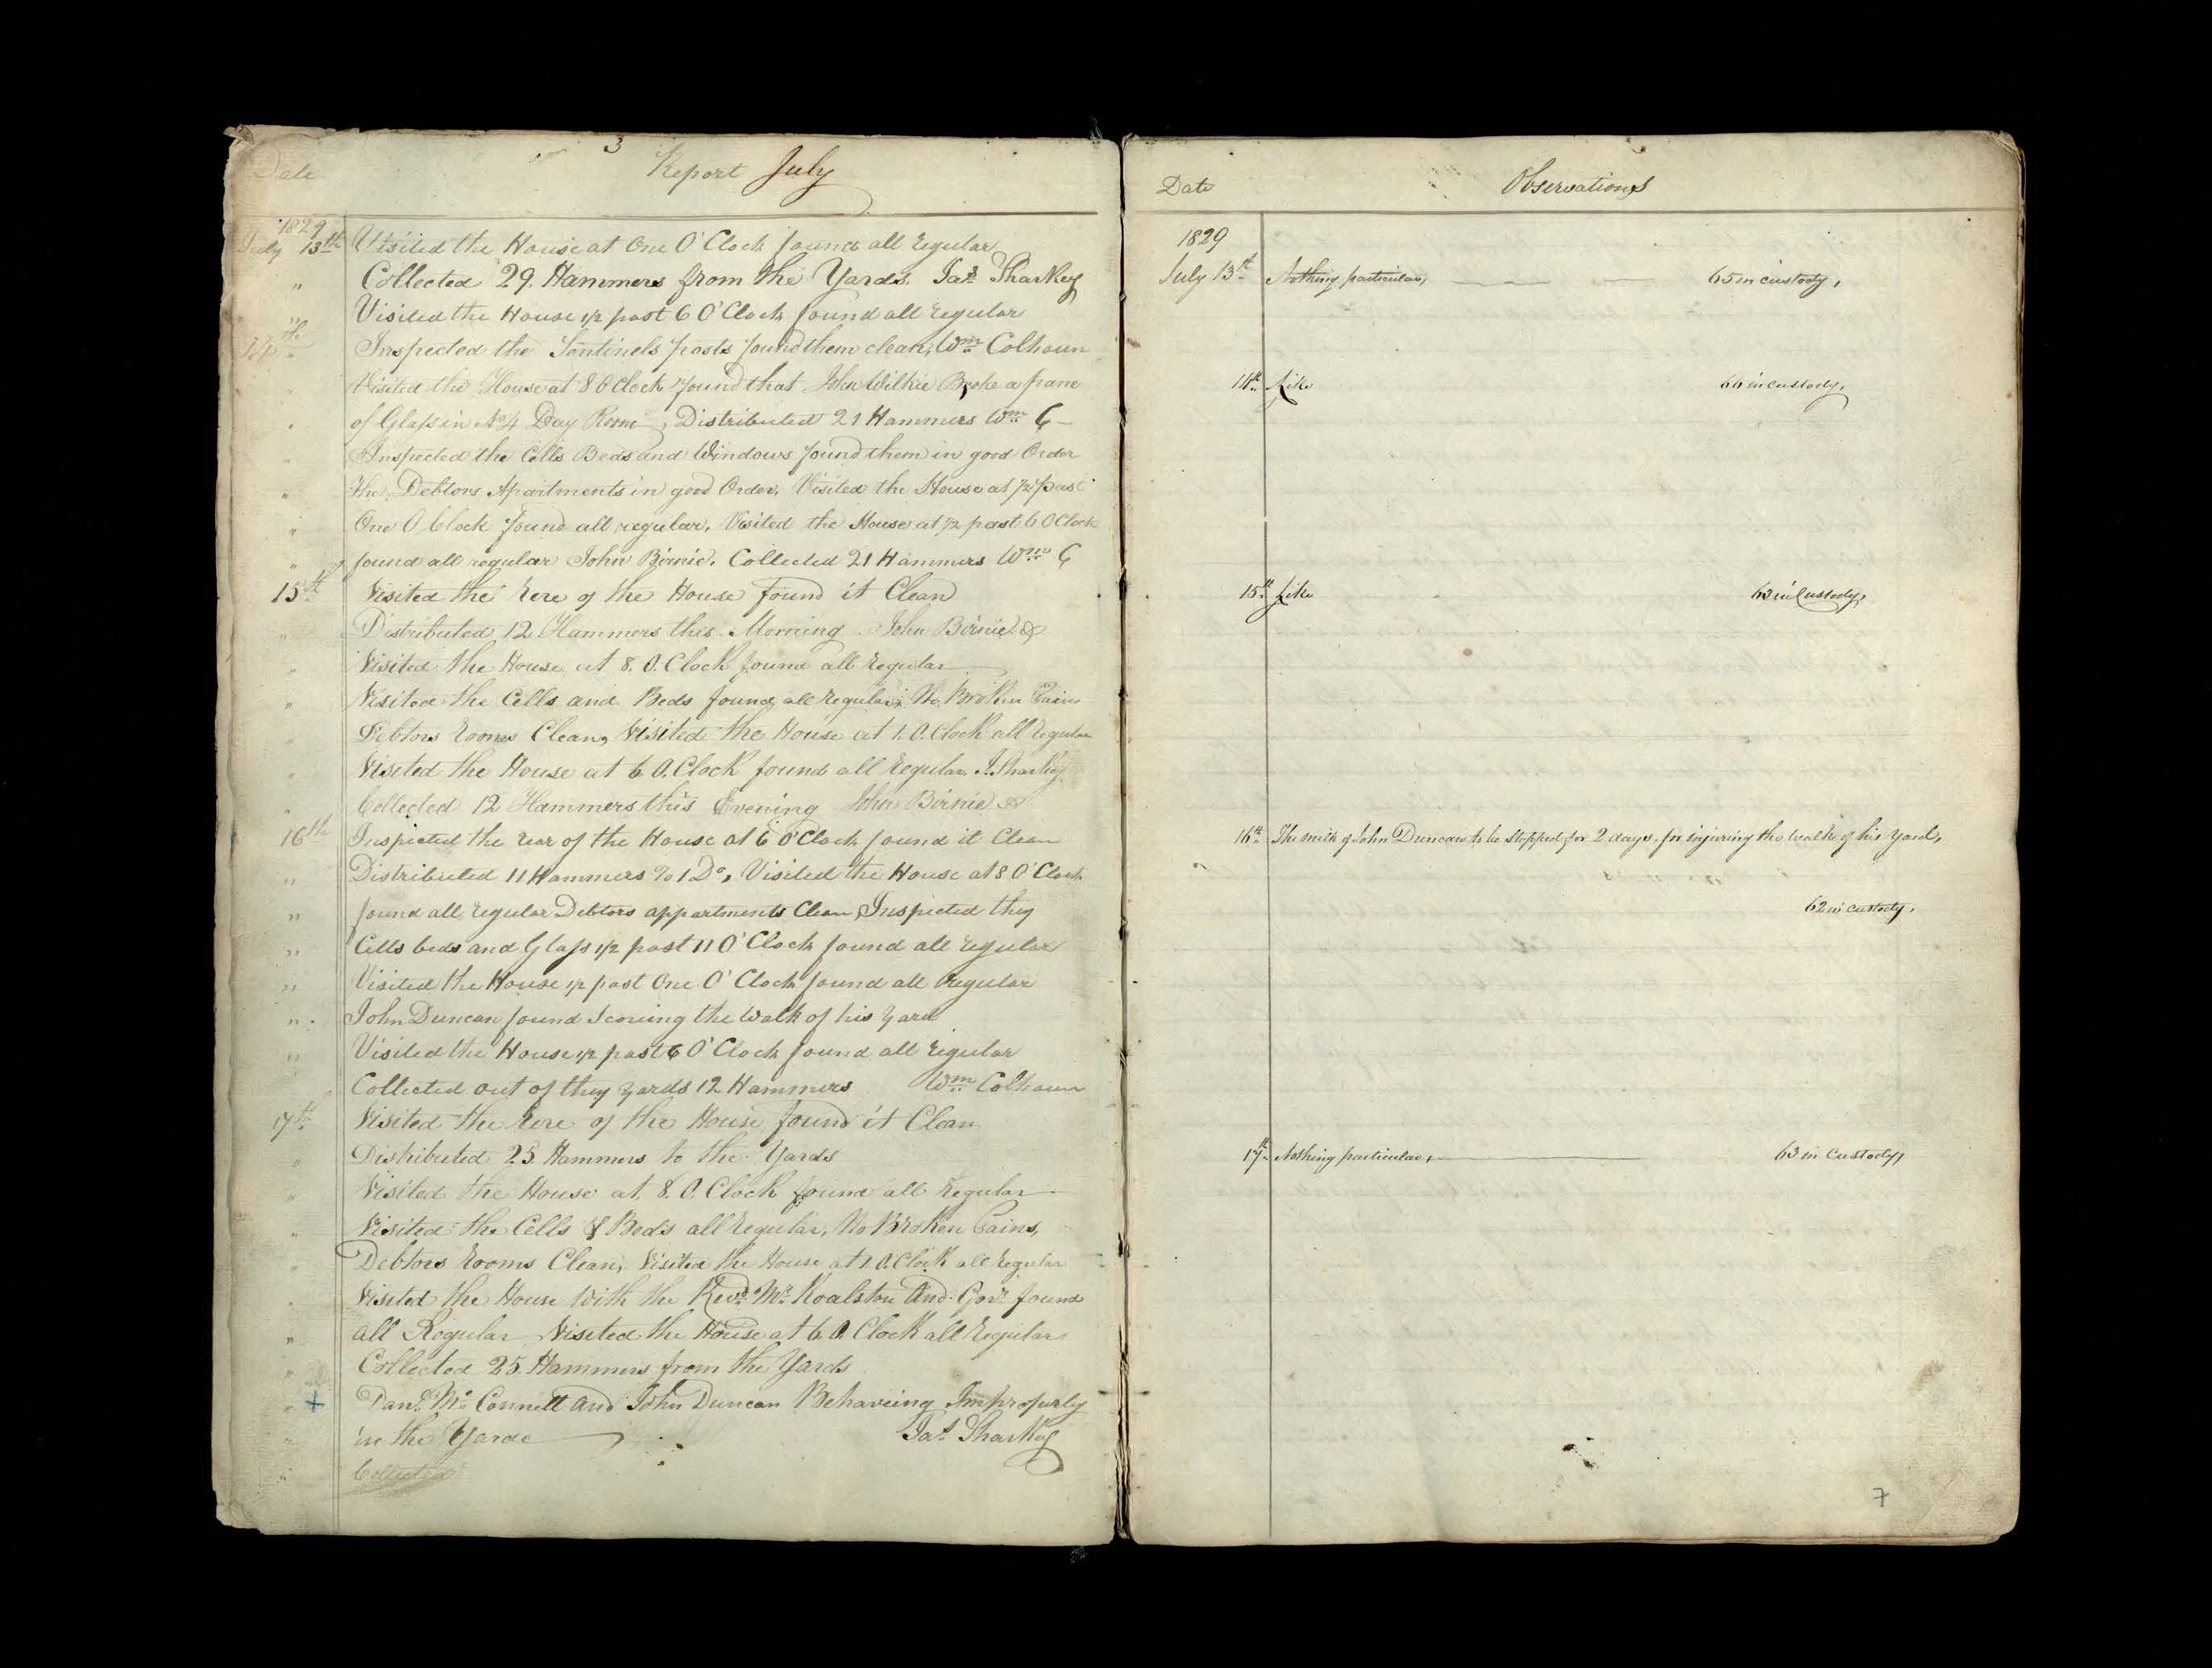 3
Date Report July
1829
July 13th Visited the House at One O'Clock found all regular
" Collected 29. Hammers from the Yards. Jas. Sharkey
" Visited the House 1/2 past 6 O'Clock found all regular
14th Inspected the Sentinels posts found them clean, Wm Colhoun
" Visited the House at 8 O Clock found that John Wilkie Broke a pane
" of Glass in No 4 Day Room, Distributed 21 Hammers Wm C
" Inspected the Cells Beds and Windows found them in good Order
" The Debtors Apartments in good Order, Visited the House at 1/2 past
" One O Clock found all regular, Visited the House at 1/2 past 6 O Clock
" found all regular John Birnie. Collected 21 Hammers Wm C
15th Visited the rere of the House found it Clean
" Distributed 12 Hammers this Morning John Birnie
" Visited the House at 8. O. Clock found all regular
" Visited the Cells and Beds found all regular; No Broken Pains
" Debtors rooms Clean, Visited the House at 1. O. Clock all regular
" Visited the House at 6 O. Clock found all regular J. Sharkey
" Collected 12 Hammers this Evening John Birnie
16th Inspected the rear of the House at 6 O'Clock found it Clean
" Distributed 11 Hammers % 1 Do, Visited the House at 8 O'Clock
" found all regular Debtors appartments Clean, Inspected they
" Cells beds and Glass 1/2 past 11 O'Clock found all regular
" Visited the House 1/2 past One O'Clock found all regular
" John Duncan found Scoring the Walk of his Yard
" Visited the House 1/2 past 6 O'Clock found all regular
Collected out of they Yards 12 Hammers Wm Colhoun
17th Visited the rere of the House found it Clean
" Distributed 25 Hammers to the Yards
" Visited the House at 8. O. Clock found all regular
" Visited the Cells & Beds all regular, No Broken Pains,
" Debtors rooms Clean, Visited the House at 1. O. Clock all regular
" Visited the House With the Revd. Mr. Roalston And Govr. found
" all Regular Visited the House at 6 O. Clock all regular
" Collected 25 Hammers from the Yards
" + Danl. Mc Connell and John Duncan Behaveing Improperly
" in the Yarde Jas. Sharkey
" Collected
Date Observations
1829
July 13th Nothing particular, 65 in custody,
14th Like 66 in custody,
15th Like 63 in Custody,
16th The milk of John Duncan to be stopped for 2 days, for injuring the walk of his yard,
62 in custody,
17th Nothing particular, 63 in Custody,
7